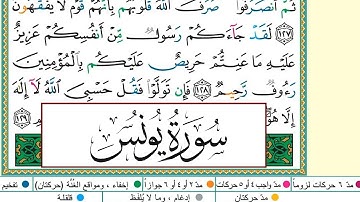 ثُمَّ ٱنصَرَفُوا۟ ۚ صَرَفَ ٱللَّهُ قُلُوبَهُم بِأَنَّهُمْ قَوْمٌ لَّا يَفْقَهُونَ
﴿١٢٧﴾ لَقَدْ جَآءَكُمْ رَسُولٌ مِّنْ أَنفُسِكُمْ عَزِيزٌ
عَلَيْهِ مَا عَنِتُّمْ حَرِيصٌ عَلَيْكُم بِٱلْمُؤْمِنِينَ
رَءُوفٌ رَّحِيمٌ ﴿١٢٨﴾ فَإِن تَوَلَّوْا۟ فَقُلْ حَسْبِىَ ٱللَّهُ لَآ إِلَٰهَ
إِلَّا هُوَ ﴿١٢٩﴾
سُورَةُ يُونُسَ
مدّ ٦ حركات لزوماً مدّ ٢ أو ٤ أو ٦ جوازاً إخفاء، ومواقع الغُنَّة (حركتان) تفخيم
مدّ واجب ٤ أو ٥ حركات مدّ حركتان إدغام، وما لا يُلفَظ قلقلة